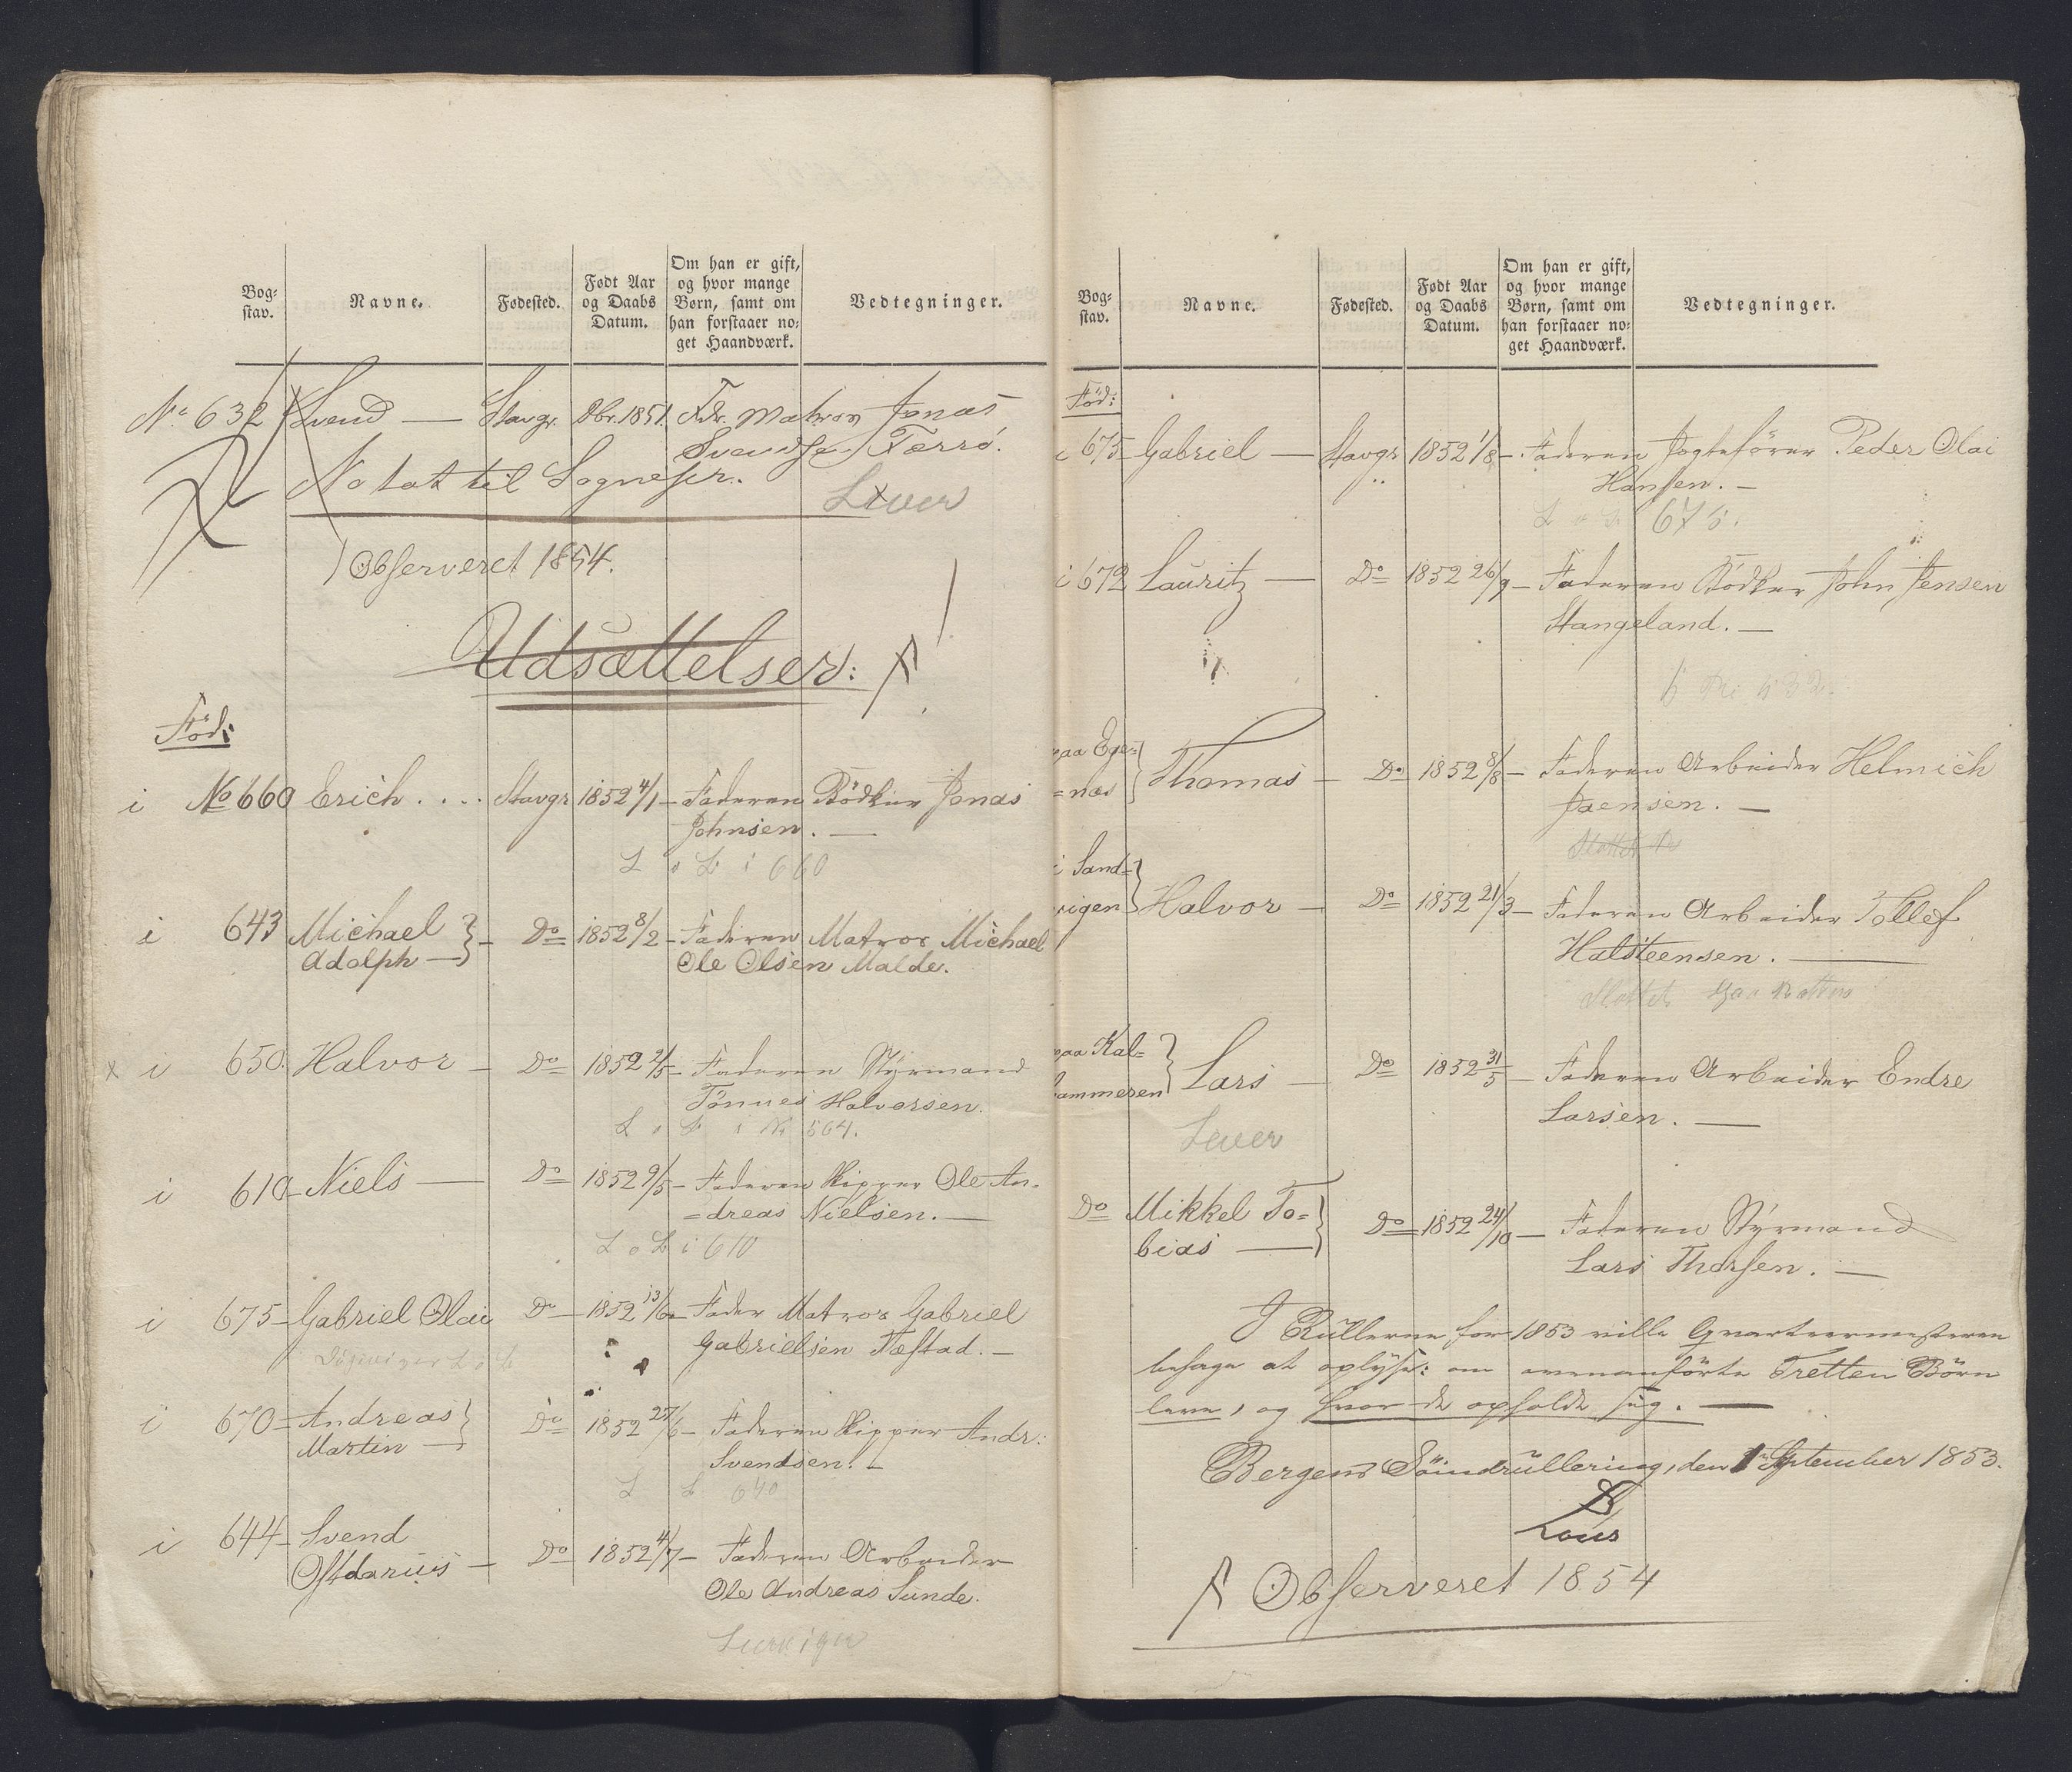 Bog-
stav.
Navne.
Fødested.
Født Aar
og Daabs
Datum.
Om han er gift,
og hvor mange
Børn, samt om
han forstaaer no-
get Haandværk.
Vedtegninger.
No 632 Svend — Stavgr. Dbr. 1851. Fdr. Matros Jonas
Svendsen Færrø.
Notat til Sognepr. Lever
Observeret 1854.
Udsættelser:
Föd:
i No 660 Erich . . . . Stavgr 1852 4/1 – Faderen Bödker Jonas
Johnsen. —
L o L i 660
i 643 Michael } – Do 1852 8/2 – Faderen Matros Michael
Adolph — Ole Olsen Malde.
x i 650. Halvor – Do 1852 2/5 – Faderen Styrmand
Tönnes Halvorsen.
L o L i No 564.
i 610 – Niels — Do 1852 9/5 – Faderen Skipper Ole An-
=dreas Nielsen. —
L o L i 610
i 675 – Gabriel Olai Do – 1852 13/6 – Fader Matros Gabriel
Gabrielsen Næstad. —
i 670 – Andreas } Do 1852 27/6 – Faderen Skipper Andr:
Martin — Svendsen. –
L L 640
i 644 – Svend
Do 1852 4/7 – Faderen Arbeider
Ole Andreas Sunde.
Bog-
stav.
Navne.
Fødested.
Født Aar
og Daabs
Datum.
Om han er gift,
og hvor mange
Børn, samt om
han forstaaer no-
get Haandværk.
Vedtegninger.
Föd:
i 675 – Gabriel — Stavgr 1852 1/8 – Faderen Jagtefører Peder Olai
Hansen. —
L o L 675.
i 672 Lauritz — Do 1852 26/9 – Faderen Bödker John Jensen
Stangeland. —
paa Ege- } Thomas – Do 1852 8/8 – Faderen Arbeider Helmich
=næs Jaensen. —
i Sand- } Halvor – Do 1852 21/3 – Faderen Arbeider Tollef
vigen Halsteensen. —
paa Kal- } Lars – Do 1852 31/5 – Faderen Arbeider Endre
hammeren Larsen. —
Lever
Do Mikkel To- } Do – 1852 24/10 — Faderen Styrmand
bias — Lars Thorsen. —
I Rullerne for 1853 ville Qvarteermesteren
behage at oplyse: om ovenanförte Tretten Börn
leve, og hvor de opholde sig. —
Bergens Söindrullering, den 1 September 1853.
Observeret 1854